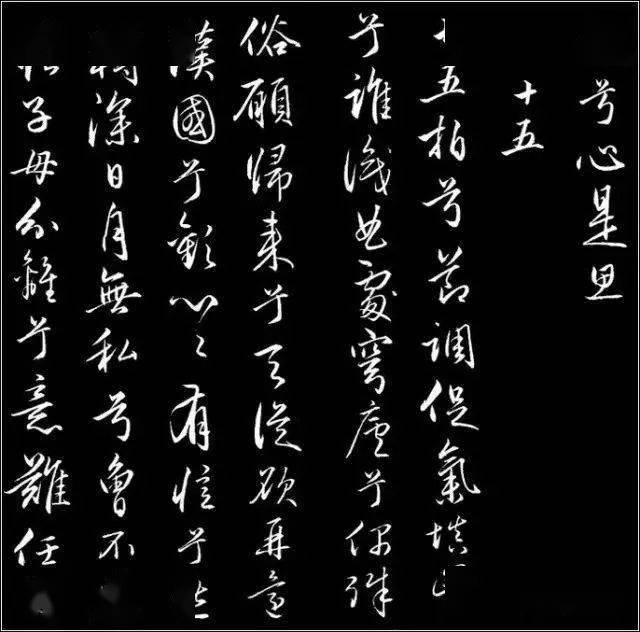 兮心是思
十五
五拍兮節調促氣填
兮誰識曲處穹廬兮偶殊
俗願歸來兮天從欲再還
漢國兮歡心〻有憶兮
深日月無私兮曾不
子母分離兮意難任